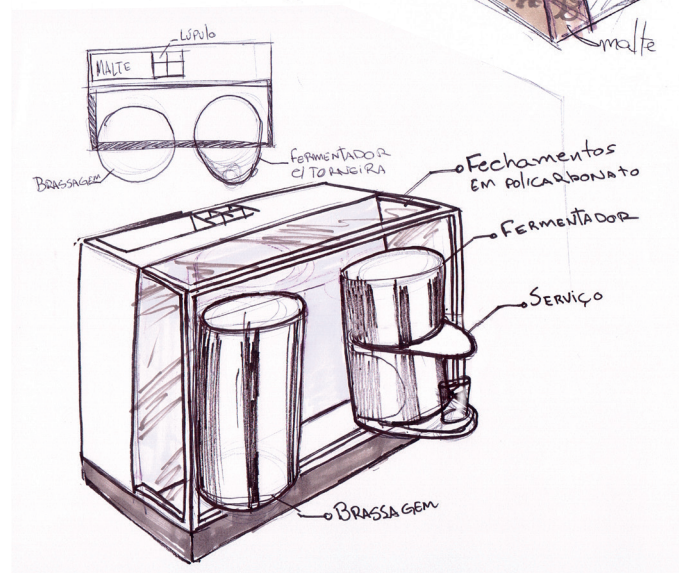 malte
LÚPULO
MALTE
BRASSAGEM
FERMENTADOR
C/ TORNEIRA
Fechamentos
EM POLICARBONATO
FERMENTADOR
SERVIÇO
BRASSAGEM